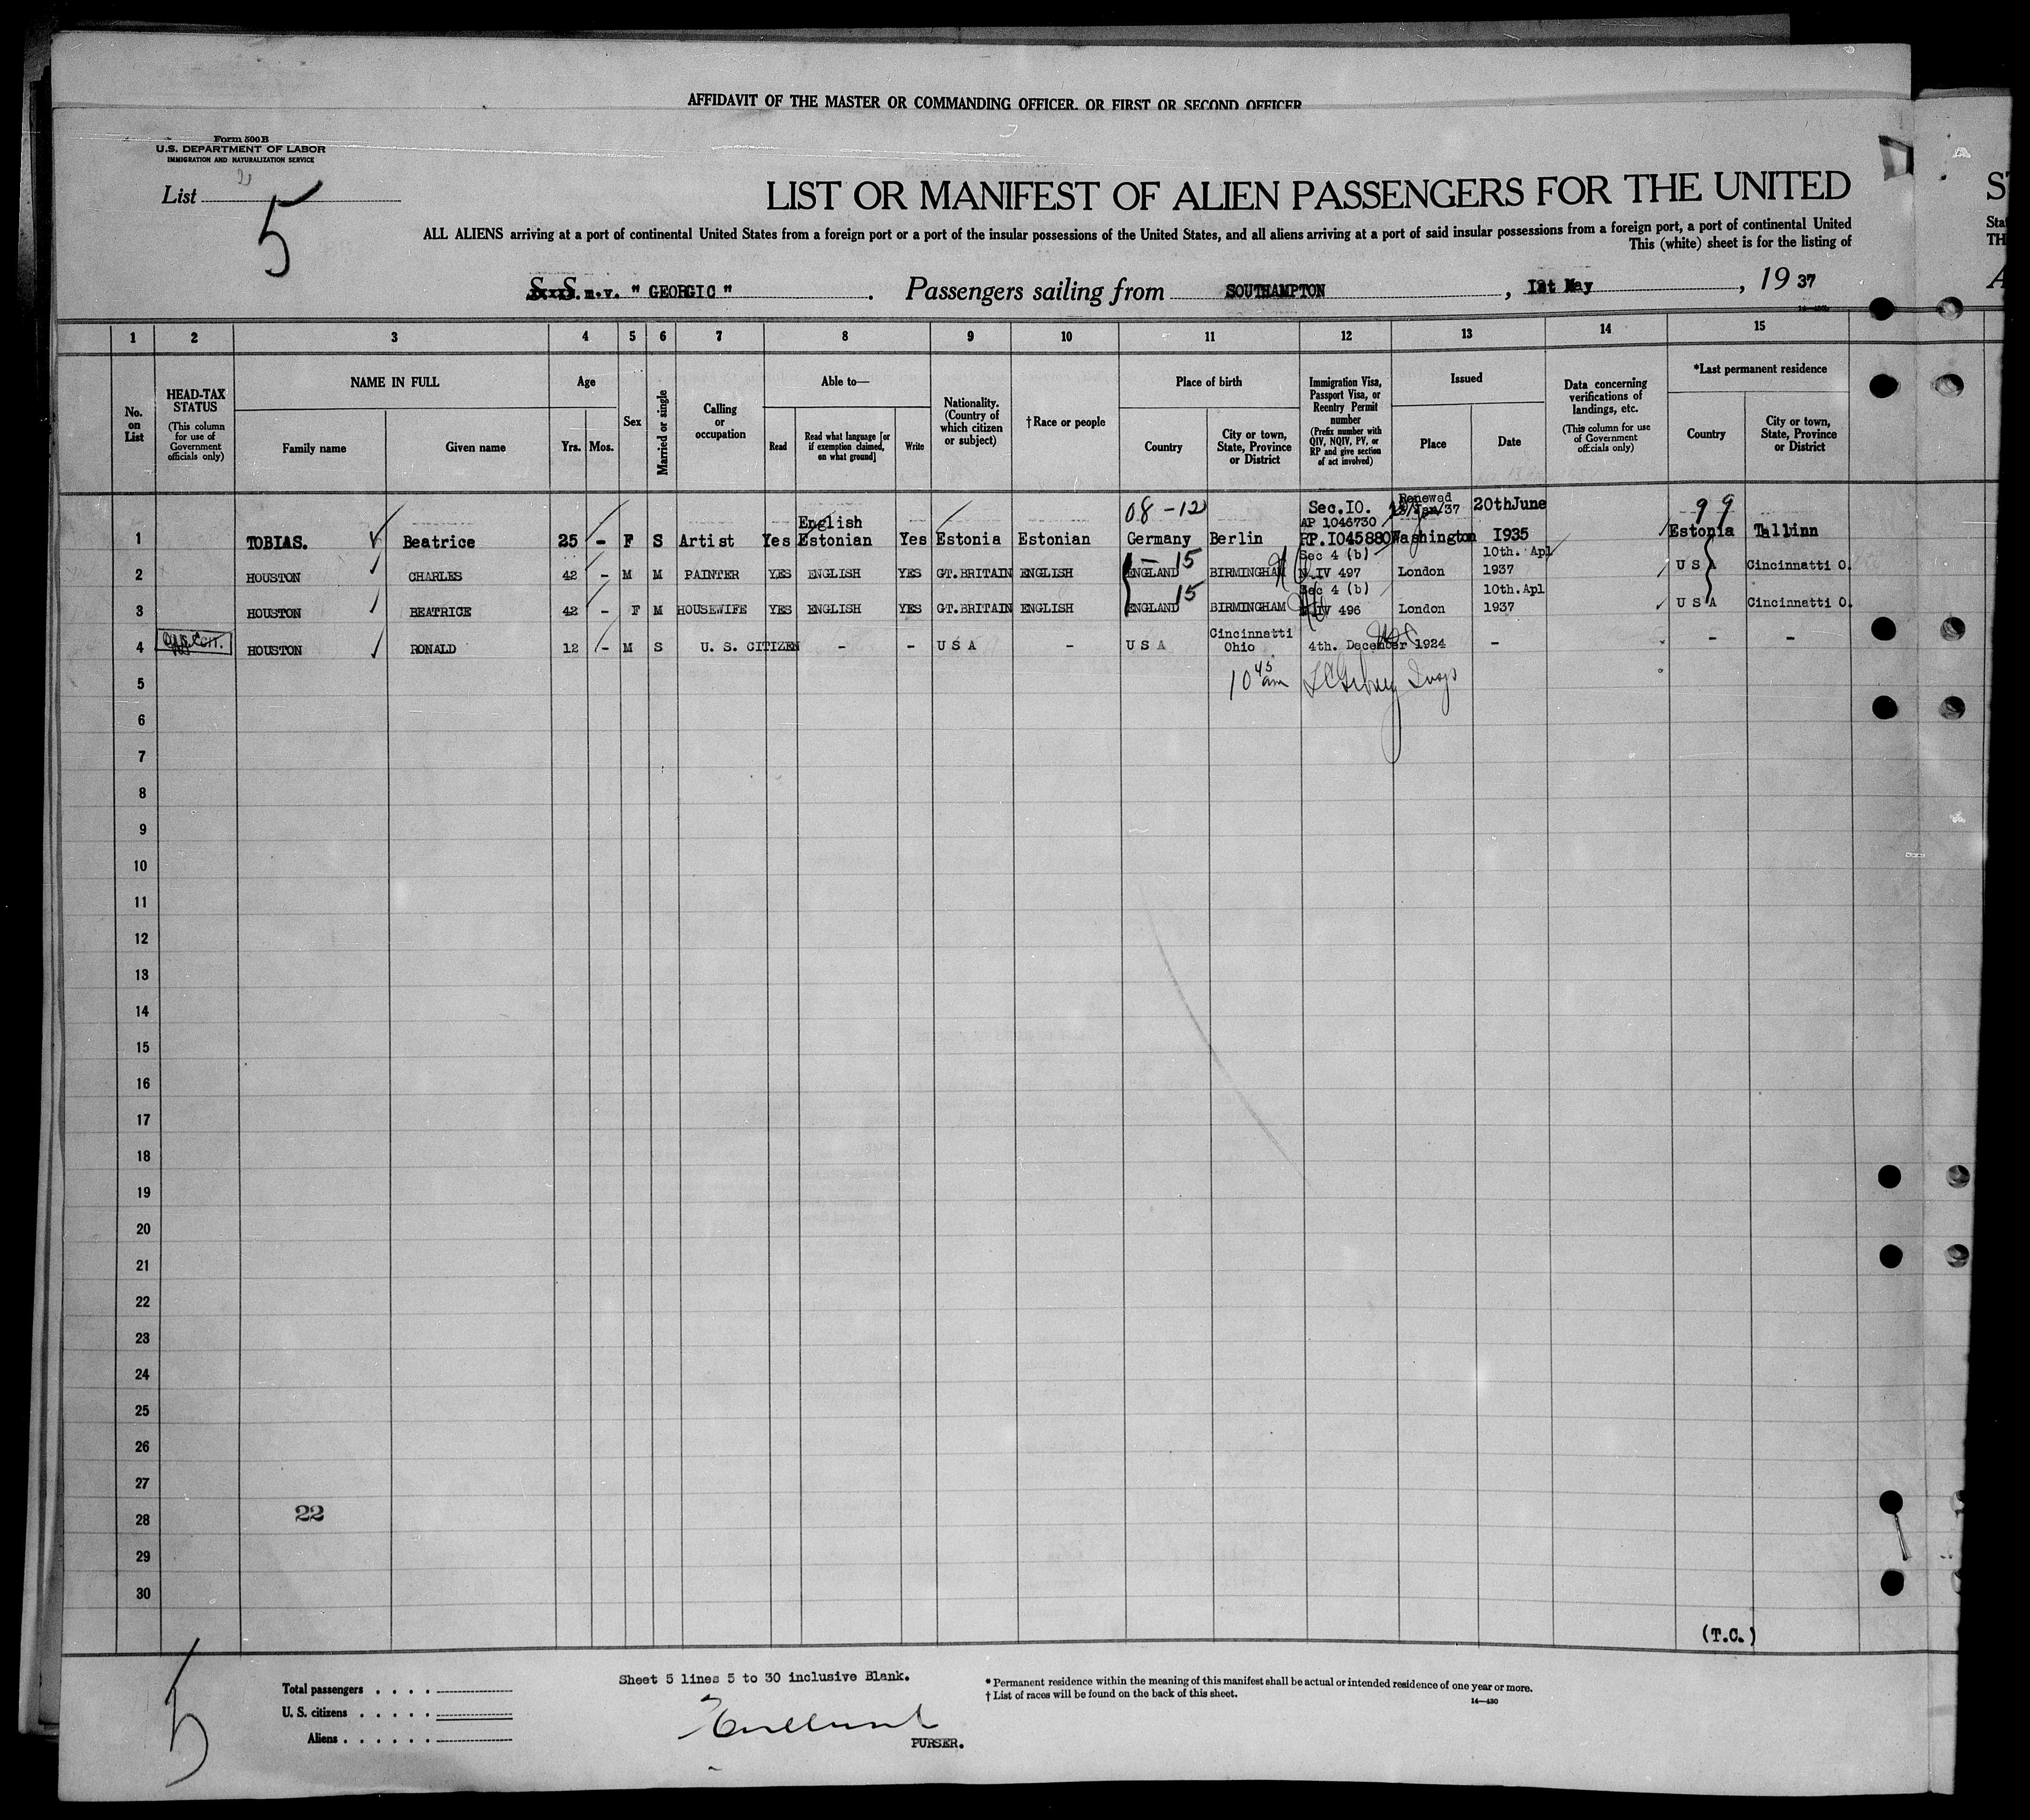 AFFIDAVIT OF THE MASTER OR COMMANDING OFFICER, OR FIRST OR SECOND OFFICER
Form 500 B
U.S. DEPARTMENT OF LABOR
IMMIGRATION AND NATURALIZATION SERVICE
List
5
LIST OR MANIFEST OF ALIEN PASSENGERS FOR THE UNITED
ALL ALIENS arriving at a port of continental United States from a foreign port or a port of the insular possessions of the United States, and all aliens arriving at a port of said insular possessions from a foreign port, a port of continental United
This (white) sheet is for the listing of
S. S. m.v. " GEORGIC " . Passengers sailing from SOUTHAMPTON , May , 19 37
1 2 3 4 5 6 7 8 9 10 11 12 13 14 15
No. on List
HEAD-TAX STATUS
(This column for use of Government officials only)
NAME IN FULL
Family name Given name
Age
Yrs. Mos.
Sex
Married or single
Calling or occupation
Able to—
Read
Read what language [or if exemption claimed, on what ground]
Write
Nationality. (Country of which citizen or subject)
† Race or people
Place of birth
Country
City or town, State, Province or District
Immigration Visa, Passport Visa, or Reentry Permit number
(Prefix number with QIV, NQIV, PV, or RP and give section of act involved)
Issued
Place Date
Data concerning verifications of landings, etc.
(This column for use of Government officials only)
*Last permanent residence
Country
City or town, State, Province or District
08 - 12 Sec.IO. Renewed 20thJune 99
English AP 1046730
1 TOBIAS. Beatrice 25 - F S Artist Yes Estonian Yes Estonia Estonian Germany Berlin RP.I045880 Washington I935 Estonia Tallinn
15 Sec 4 (b) 10th. Apl
2 HOUSTON CHARLES 42 - M M PAINTER YES ENGLISH YES GT.BRITAIN ENGLISH ENGLAND BIRMINGHAM IV 497 London 1937 U S A Cincinnatti O.
15 Sec 4 (b) 10th.Apl
3 HOUSTON BEATRICE 42 - F M HOUSEWIFE YES ENGLISH YES GT.BRITAIN ENGLISH ENGLAND BIRMINGHAM IV 496 London 1937 U S A Cincinnatti O.
4 HOUSTON RONALD 12 - M S U. S. CITIZEN - - U S A - U S A Cincinnatti Ohio 4th. December 1924 - - -
5 10 45 am
6
7
8
9
10
11
12
13
14
15
16
17
18
19
20
21
22
23
24
25
26
27
28 22
29
30
(T.C.)
5
Total passengers . . . .
U. S. citizens . . . . .
Aliens . . . . . .
Sheet 5 lines 5 to 30 inclusive Blank.
PURSER.
* Permanent residence within the meaning of this manifest shall be actual or intended residence of one year or more.
† List of races will be found on the back of this sheet.
14—430